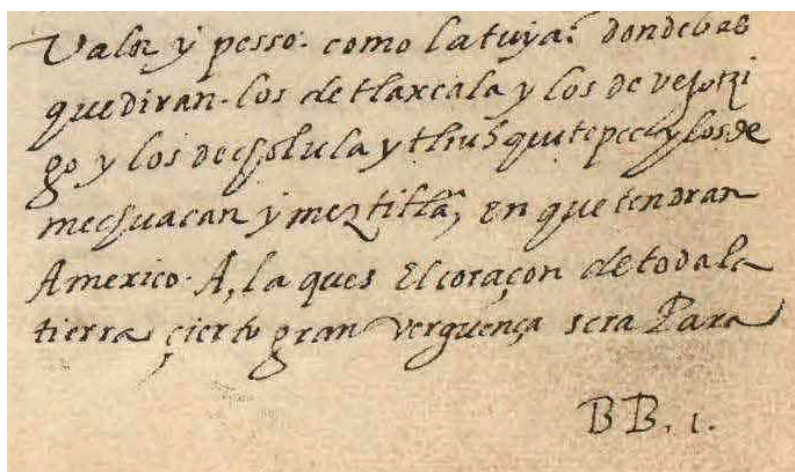 Valor y pesso. como la tuya. dondebas
que diran. los de tlaxcala y los de vexotzi
go y los de cholula y tliuhquitepec y los de
mechuacan y meztitlā, en que tendran
A mexico. A, la ques El coraçon de toda la
tierra çierto gran verguença sera Para
BB. 1.